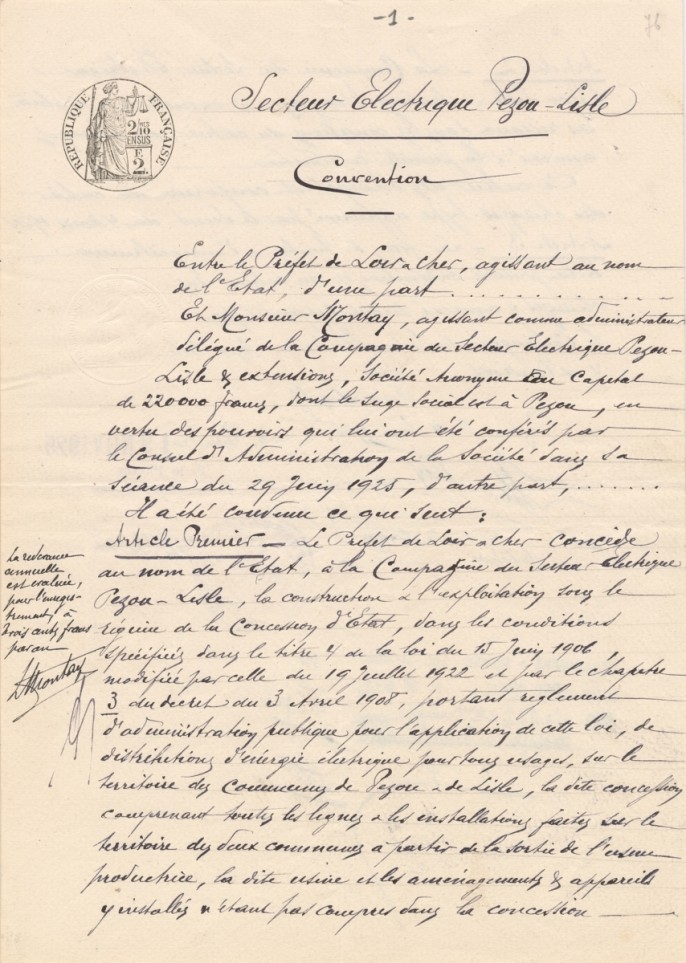 - 1 -
76
RÉPUBLIQUE FRANÇAISE
2 fres
2/10
EN SUS
E
2
Secteur Electrique Pezou-Lisle
Convention
Entre le Préfet de Loir & Cher, agissant au nom
de l'Etat, d'une part ............
Et Monsieur Montay, agissant comme administrateur
délégué de la Compagnie du Secteur Electrique Pezou-
Lisle & extensions, Société Anonyme au Capital
de 220000 francs, dont le siège social est à Pezou, en
vertu des pouvoirs qui lui ont été conférés par
le Conseil d'Administration de la Société dans sa
séance du 29 Juin 1925, d'autre part, .......
Il a été convenu ce qui suit :
Article Premier — Le Préfet de Loir & Cher concède
au nom de l'Etat, à la Compagnie du Secteur Electrique
Pezou-Lisle, la construction & l'exploitation sous le
régime de la Concession d'Etat, dans les conditions
spécifiées dans le titre 4 de la loi du 15 Juin 1906,
modifiée par celle du 19 Juillet 1922 et par le chapitre
3 du decret du 3 Avril 1908, portant reglement
d'administration publique pour l'application de cette loi, de
distributions d'énergie électrique pour tous usages, sur le
territoire des Communes de Pezou & de Lisle, la dite concession
comprenant toutes les lignes & les installations faites sur le
territoire des deux communes à partir de la sortie de l'usine
productrice, la dite usine et les aménagements & appareils
y installés n'étant pas compris dans la concession —
La redevance
annuelle
est évaluée,
pour l'enregis-
trement, à
trois cents francs
par an
Montay